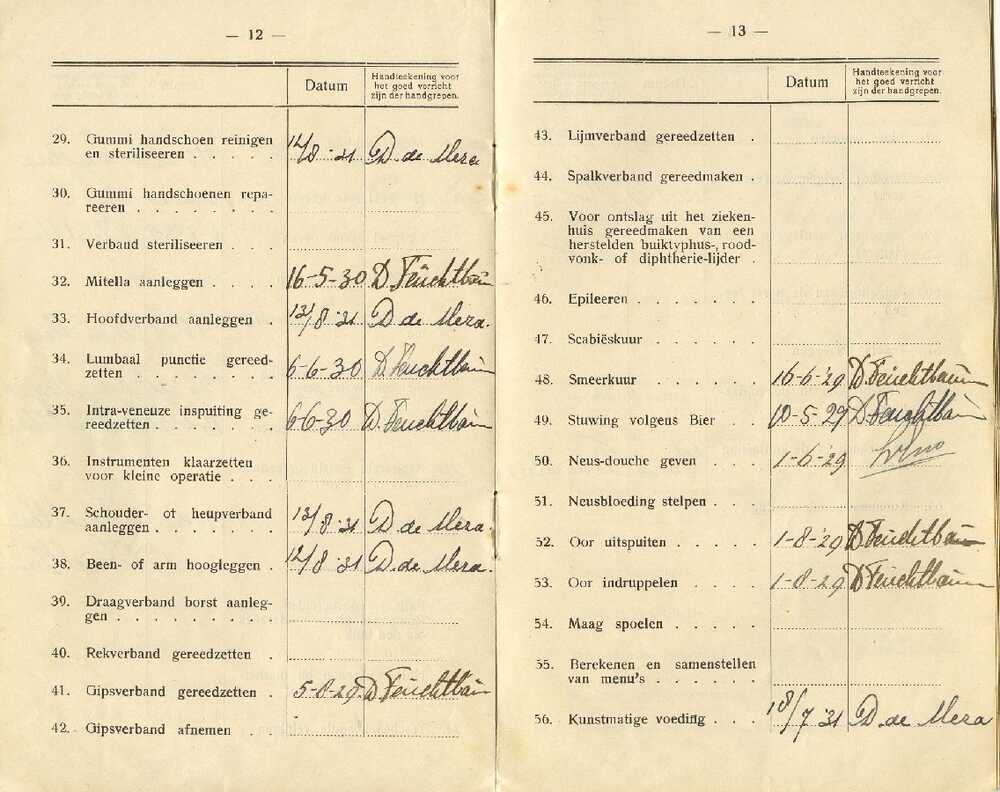 — 12 —
Datum
Handteekening voor
het goed verricht
zijn der handgrepen.
29. Gummi handschoen reinigen
en steriliseeren . . . . . 12/8 '31 D de Mera
30. Gummi handschoenen repa-
reeren . . . . . . . .
31. Verband steriliseeren . . .
32. Mitella aanleggen . . . . 16-5-30 D. Feuchtbaum
33. Hoofdverband aanleggen . 12/8 '31 D de Mera.
34. Lumbaal punctie gereed-
zetten . . . . . . . . 6-6-30 D. Feuchtbaum
35. Intra-veneuze inspuiting ge-
reedzetten . . . . . . . 6-6-30 D. Feuchtbaum
36. Instrumenten klaarzetten
voor kleine operatie . . .
37. Schouder- of heupverband
aanleggen . . . . . . . 12/8 '31 D de Mera.
38. Been- of arm hoogleggen . 12/8 '31 D de Mera.
39. Draagverband borst aanleg-
gen . . . . . . . . .
40. Rekverband gereedzetten .
41. Gipsverband gereedzetten . 5-8-29 D. Feuchtbaum
42. Gipsverband afnemen . .
— 13 —
Datum
Handteekening voor
het goed verricht
zijn der handgrepen.
43. Lijmverband gereedzetten .
44. Spalkverband gereedmaken .
45. Voor ontslag uit het zieken-
huis gereedmaken van een
herstelden buiktyphus-, rood-
vonk- of diphtherie-lijder .
46. Epileeren . . . . . . .
47. Scabiëskuur . . . . . .
48. Smeerkuur . . . . . . 16-6-'29 D. Feuchtbaum
49. Stuwing volgens Bier . . 10-5-'29 D. Feuchtbaum
50. Neus-douche geven . . . 1-6-'29
51. Neusbloeding stelpen . . .
52. Oor uitspuiten . . . . . 1-8-'29 D Feuchtbaum
53. Oor indruppelen . . . . 1-8-29 D Feuchtbaum
54. Maag spoelen . . . . .
55. Berekenen en samenstellen
van menu's . . . . . .
56. Kunstmatige voeding . . . 18/7 '31 D. de Mera